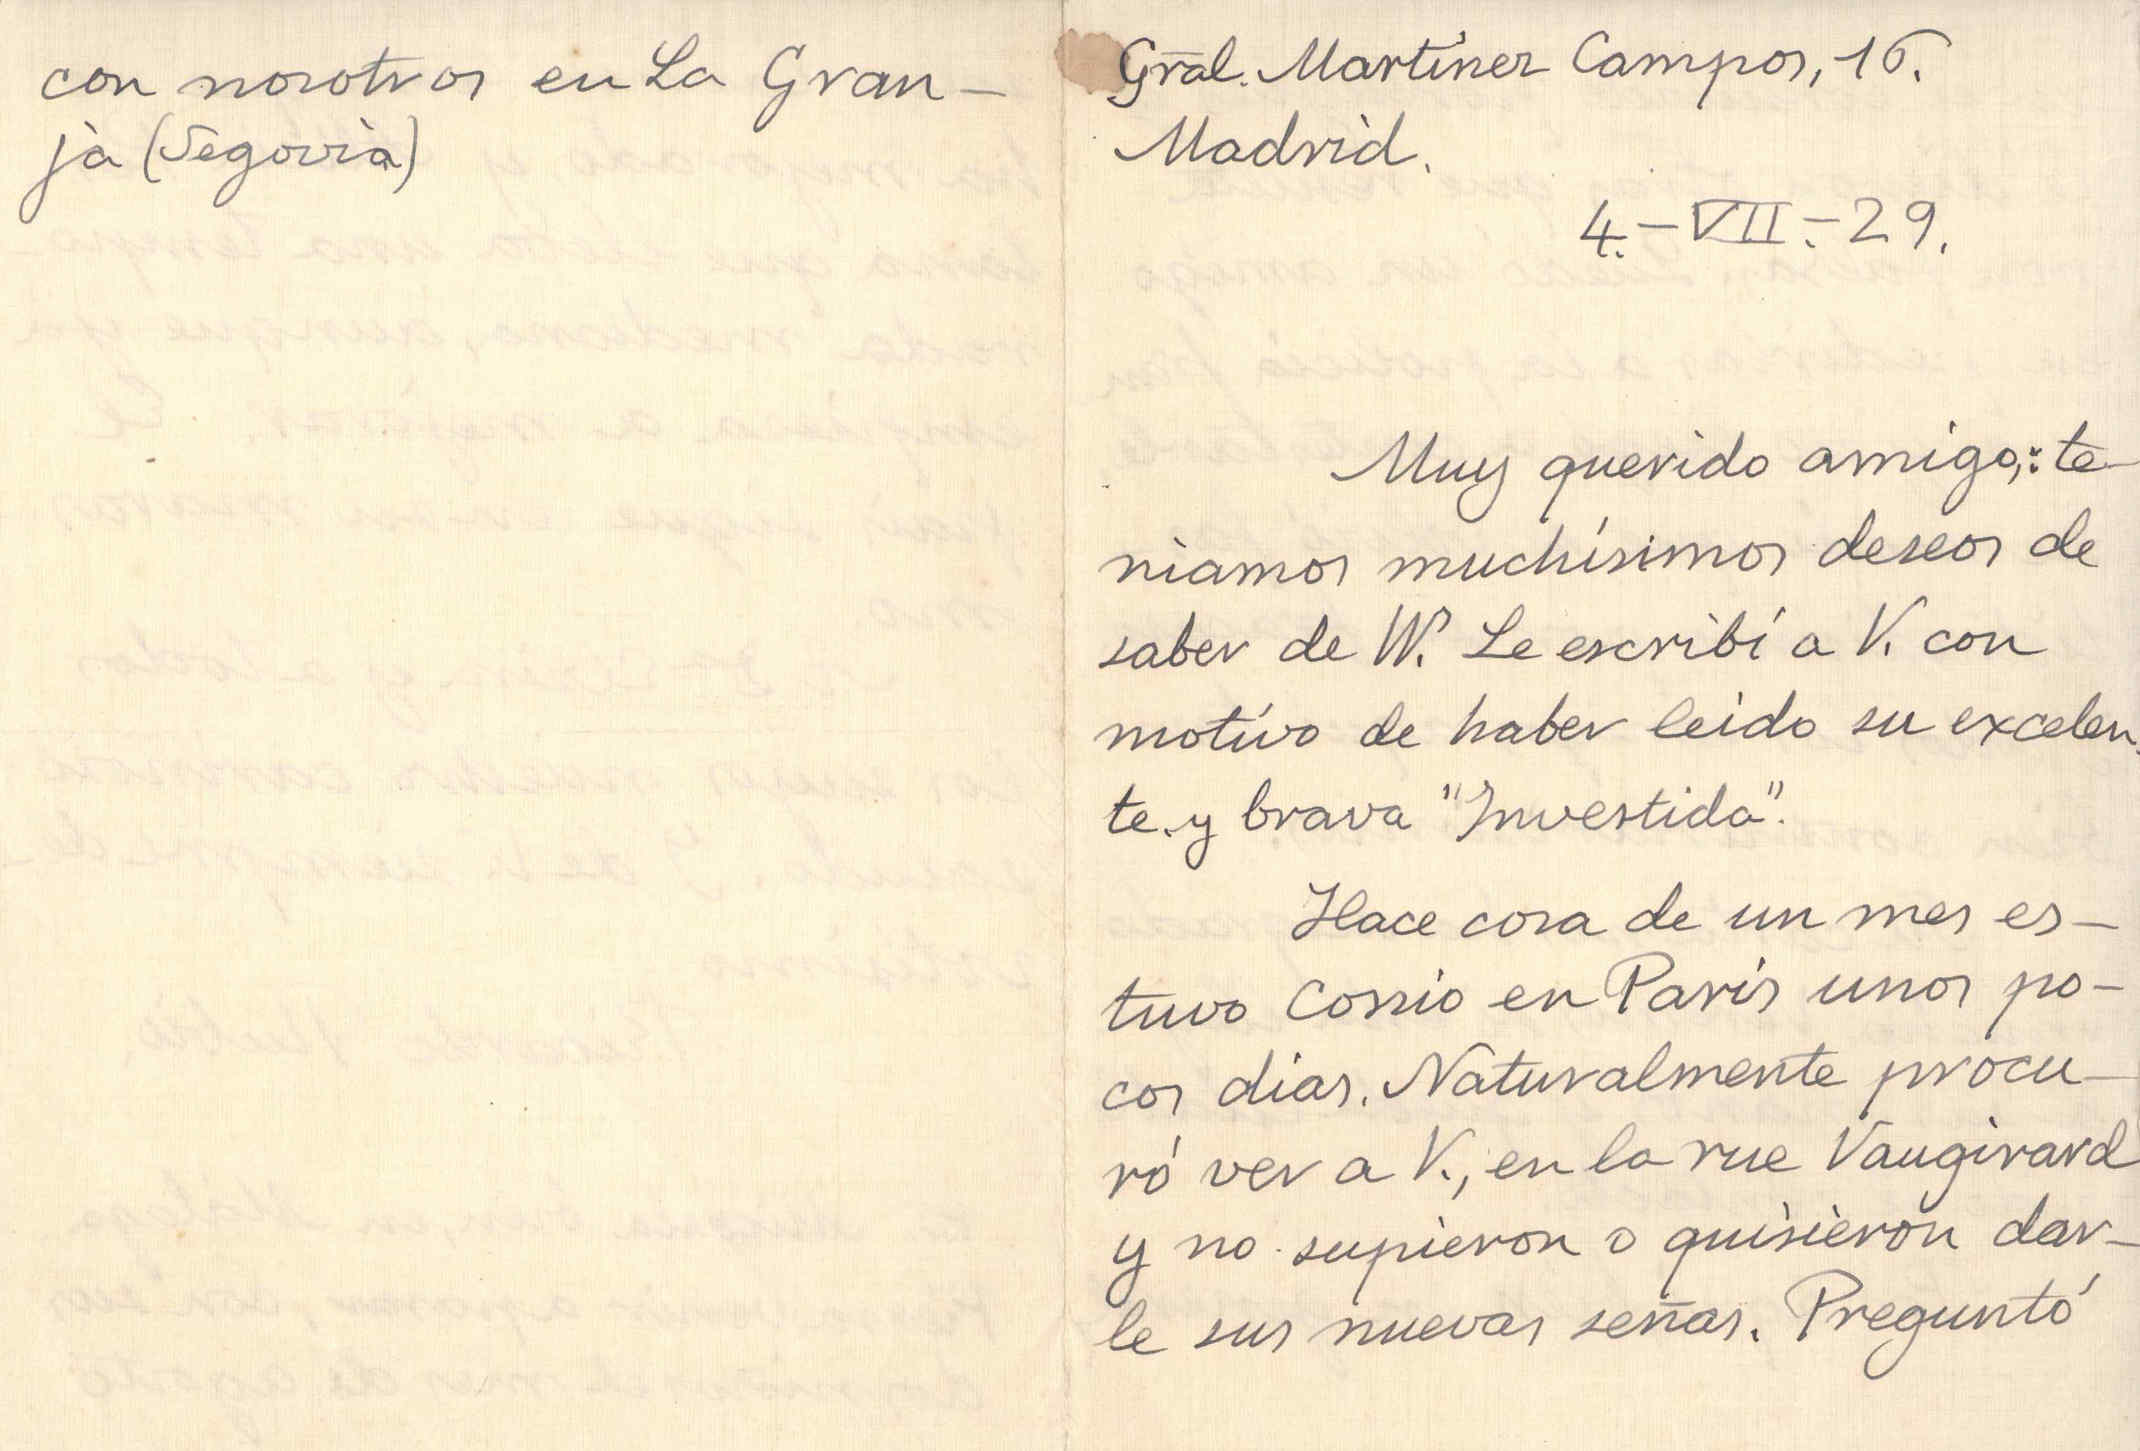 con nosotros en La Gran-
ja (Segovia)
Gral. Martinez Campos, 16.
Madrid.
4.-VII.-29.
Muy querido amigo: te-
niamos muchísimos deseos de
saber de VV. Le escribí a V. con
motivo de haber leido su excelen-
te y brava "Investida".
Hace cosa de un mes es-
tuvo Cossio en Paris unos po-
cos dias. Naturalmente procu-
ró ver a V., en la rue Vaugirard
y no supieron o quisieron dar-
le sus nuevas señas. Preguntó